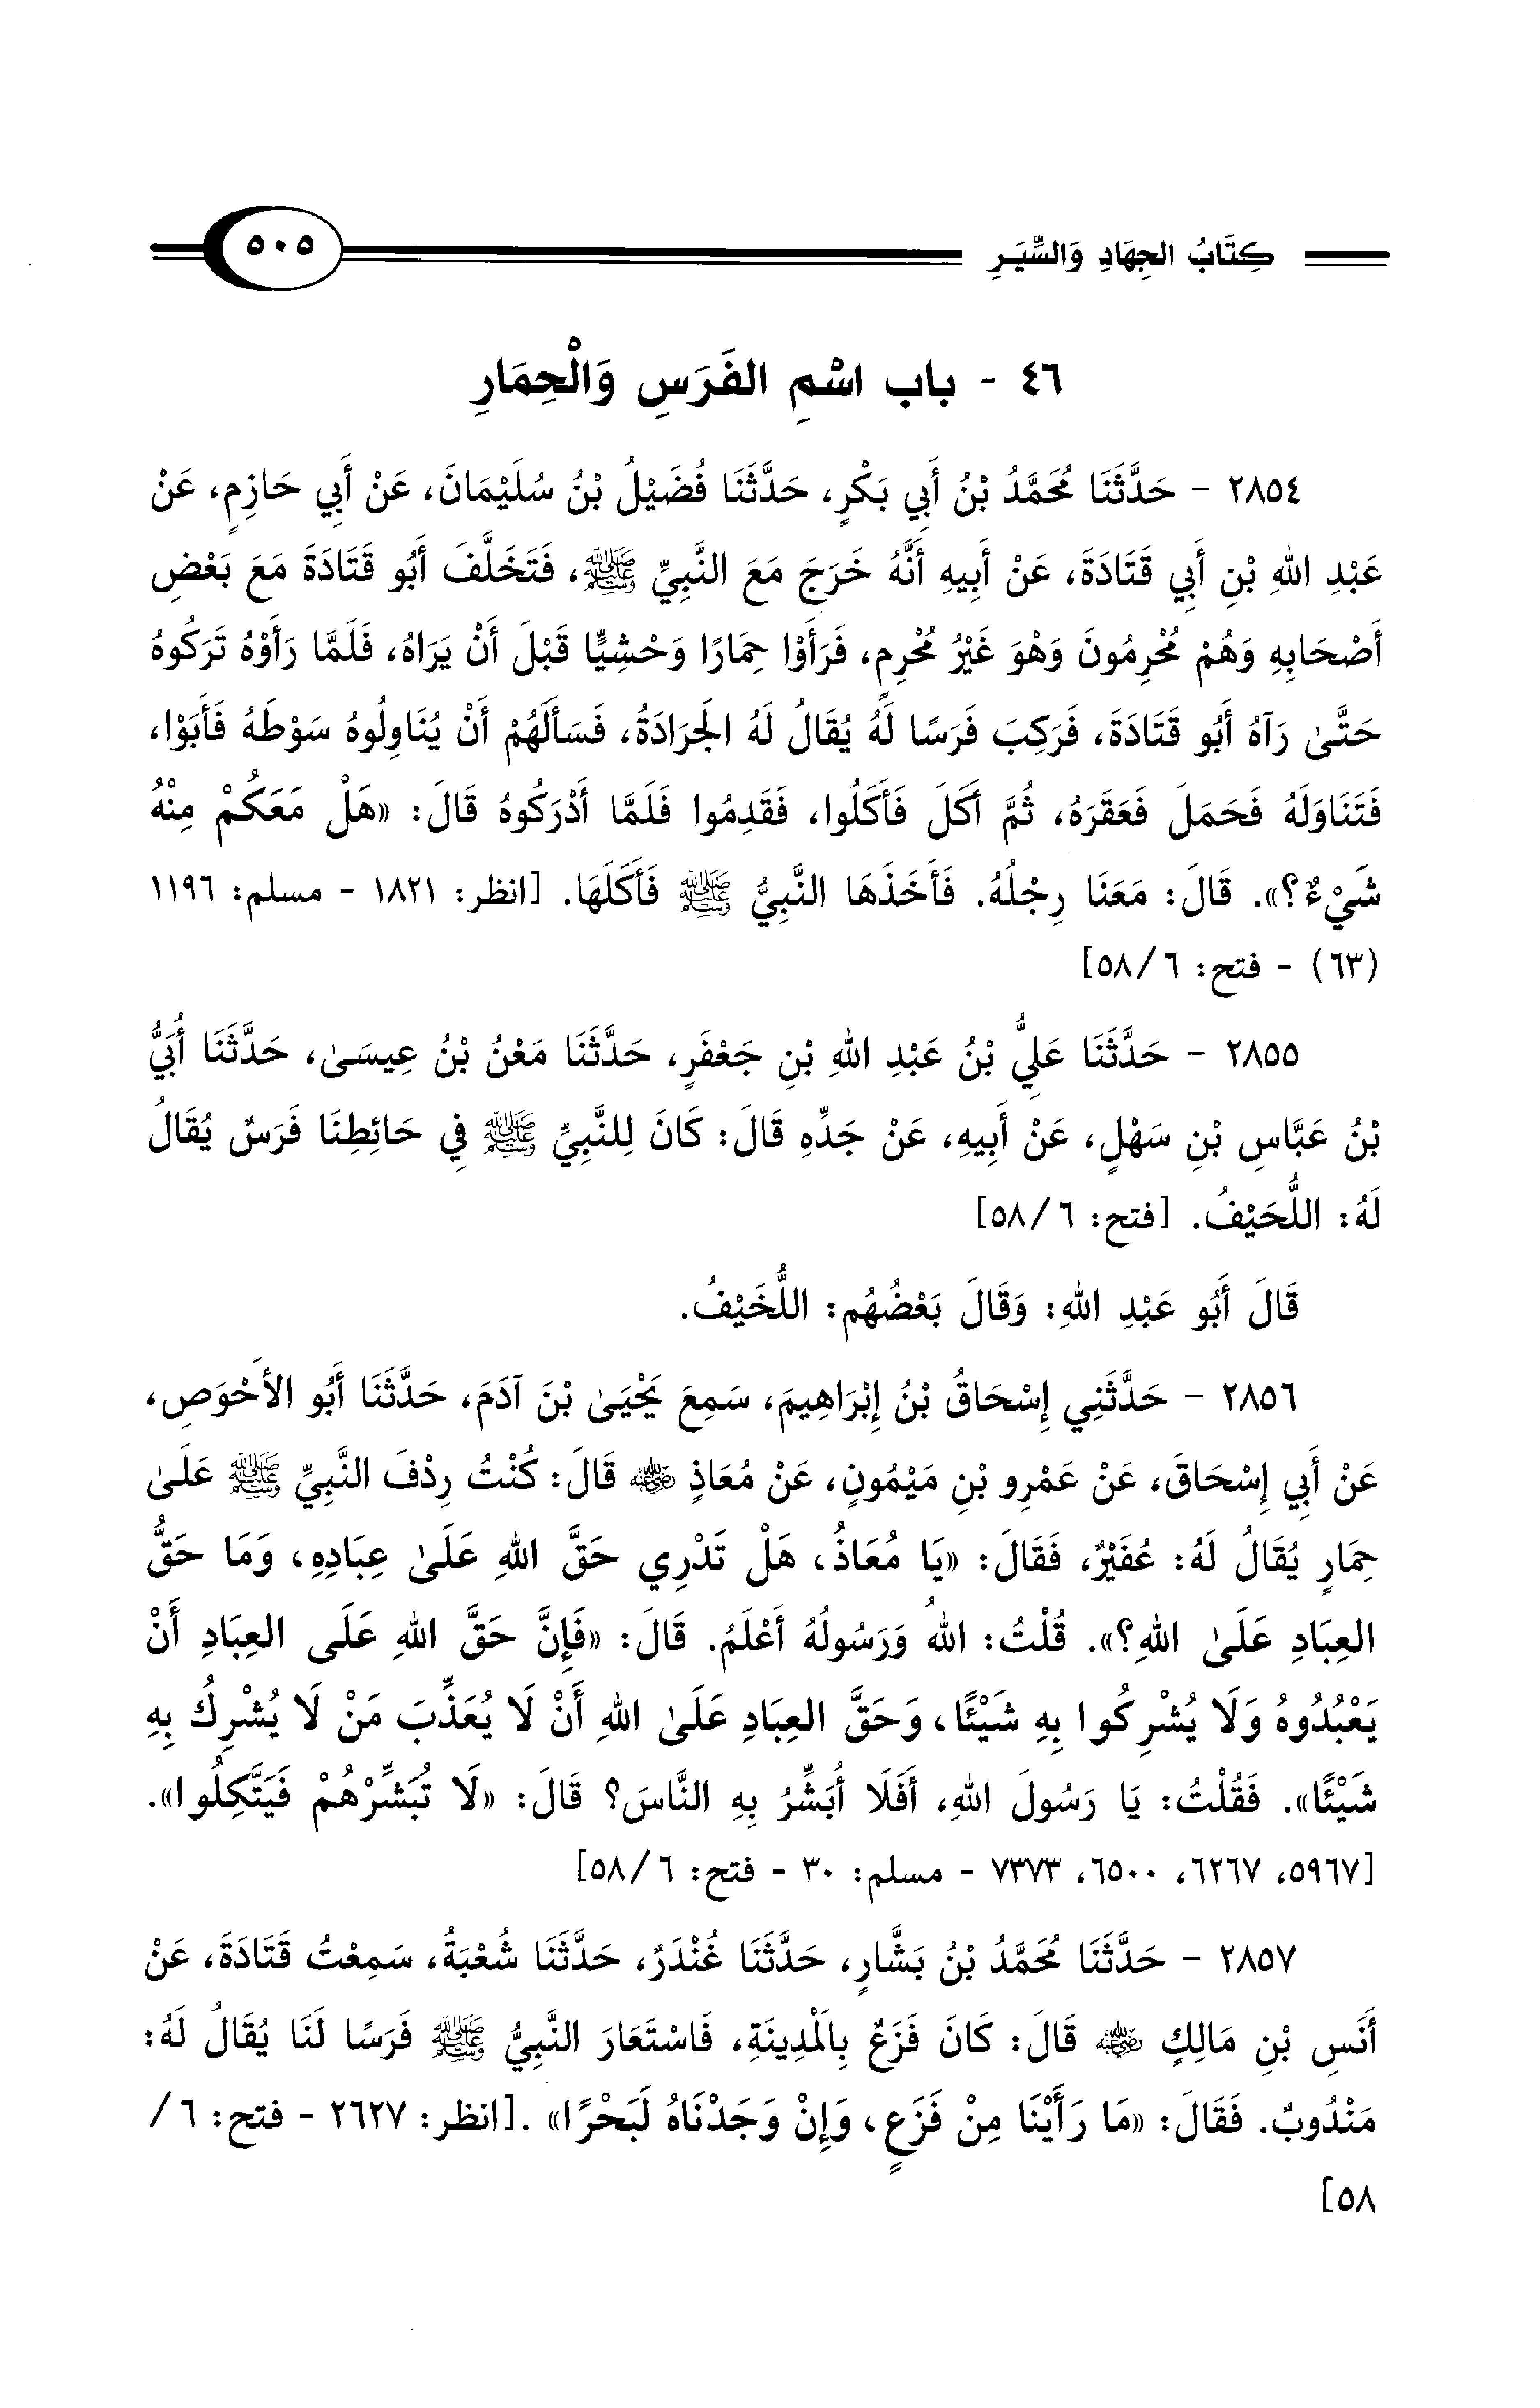 كِتَابُ الجِهَادِ وَالسِّيَرِ ٥٠٥
٤٦ - باب اسْمِ الفَرَسِ وَالْحِمَارِ
٢٨٥٤ - حَدَّثَنَا مُحَمَّدُ بْنُ أَبِي بَكْرٍ، حَدَّثَنَا فُضَيْلُ بْنُ سُلَيْمَانَ، عَنْ أَبِي حَازِمٍ، عَنْ
عَبْدِ اللهِ بْنِ أَبِي قَتَادَةَ، عَنْ أَبِيهِ أَنَّهُ خَرَجَ مَعَ النَّبِيِّ ﷺ، فَتَخَلَّفَ أَبُو قَتَادَةَ مَعَ بَعْضِ
أَصْحَابِهِ وَهُمْ مُحْرِمُونَ وَهْوَ غَيْرُ مُحْرِمٍ، فَرَأَوْا حِمَارًا وَحْشِيًّا قَبْلَ أَنْ يَرَاهُ، فَلَمَّا رَأَوْهُ تَرَكُوهُ
حَتَّىٰ رَآهُ أَبُو قَتَادَةَ، فَرَكِبَ فَرَسًا لَهُ يُقَالُ لَهُ الجَرَادَةُ، فَسَأَلَهُمْ أَنْ يُنَاوِلُوهُ سَوْطَهُ فَأَبَوْا،
فَتَنَاوَلَهُ فَحَمَلَ فَعَقَرَهُ، ثُمَّ أَكَلَ فَأَكَلُوا، فَقَدِمُوا فَلَمَّا أَدْرَكُوهُ قَالَ: «هَلْ مَعَكُمْ مِنْهُ
شَيْءٌ؟». قَالَ: مَعَنَا رِجْلُهُ. فَأَخَذَهَا النَّبِيُّ ﷺ فَأَكَلَهَا. [انظر: ١٨٢١ - مسلم: ١١٩٦
(٦٣) - فتح: ٦/ ٥٨]
٢٨٥٥ - حَدَّثَنَا عَلِيُّ بْنُ عَبْدِ اللهِ بْنِ جَعْفَرٍ، حَدَّثَنَا مَعْنُ بْنُ عِيسَىٰ، حَدَّثَنَا أُبَيُّ
بْنُ عَبَّاسِ بْنِ سَهْلٍ، عَنْ أَبِيهِ، عَنْ جَدِّهِ قَالَ: كَانَ لِلنَّبِيِّ ﷺ فِي حَائِطِنَا فَرَسٌ يُقَالُ
لَهُ: اللُّحَيْفُ. [فتح: ٦/ ٥٨]
قَالَ أَبُو عَبْدِ اللهِ: وَقَالَ بَعْضُهُم: اللُّخَيْفُ.
٢٨٥٦ - حَدَّثَنِي إِسْحَاقُ بْنُ إِبْرَاهِيمَ، سَمِعَ يَحْيَىٰ بْنَ آدَمَ، حَدَّثَنَا أَبُو الأَحْوَصِ،
عَنْ أَبِي إِسْحَاقَ، عَنْ عَمْرِو بْنِ مَيْمُونٍ، عَنْ مُعَاذٍ رضي الله عنه قَالَ: كُنْتُ رِدْفَ النَّبِيِّ ﷺ عَلَىٰ
حِمَارٍ يُقَالُ لَهُ: عُفَيْرٌ، فَقَالَ: «يَا مُعَاذُ، هَلْ تَدْرِي حَقَّ اللهِ عَلَىٰ عِبَادِهِ، وَمَا حَقُّ
العِبَادِ عَلَىٰ اللهِ؟». قُلْتُ: اللهُ وَرَسُولُهُ أَعْلَمُ. قَالَ: «فَإِنَّ حَقَّ اللهِ عَلَى العِبَادِ أَنْ
يَعْبُدُوهُ وَلَا يُشْرِكُوا بِهِ شَيْئًا، وَحَقَّ العِبَادِ عَلَىٰ اللهِ أَنْ لَا يُعَذِّبَ مَنْ لَا يُشْرِكُ بِهِ
شَيْئًا». فَقُلْتُ: يَا رَسُولَ اللهِ، أَفَلَا أُبَشِّرُ بِهِ النَّاسَ؟ قَالَ: «لَا تُبَشِّرْهُمْ فَيَتَّكِلُوا».
[٥٩٦٧، ٦٢٦٧، ٦٥٠٠، ٧٣٧٣ - مسلم: ٣٠ - فتح: ٦/ ٥٨]
٢٨٥٧ - حَدَّثَنَا مُحَمَّدُ بْنُ بَشَّارٍ، حَدَّثَنَا غُنْدَرٌ، حَدَّثَنَا شُعْبَةُ، سَمِعْتُ قَتَادَةَ، عَنْ
أَنَسِ بْنِ مَالِكٍ رضي الله عنه قَالَ: كَانَ فَزَعٌ بِالمَدِينَةِ، فَاسْتَعَارَ النَّبِيُّ ﷺ فَرَسًا لَنَا يُقَالُ لَهُ:
مَنْدُوبٌ. فَقَالَ: «مَا رَأَيْنَا مِنْ فَزَعٍ، وَإِنْ وَجَدْنَاهُ لَبَحْرًا» .[انظر: ٢٦٢٧ - فتح: ٦/
٥٨]